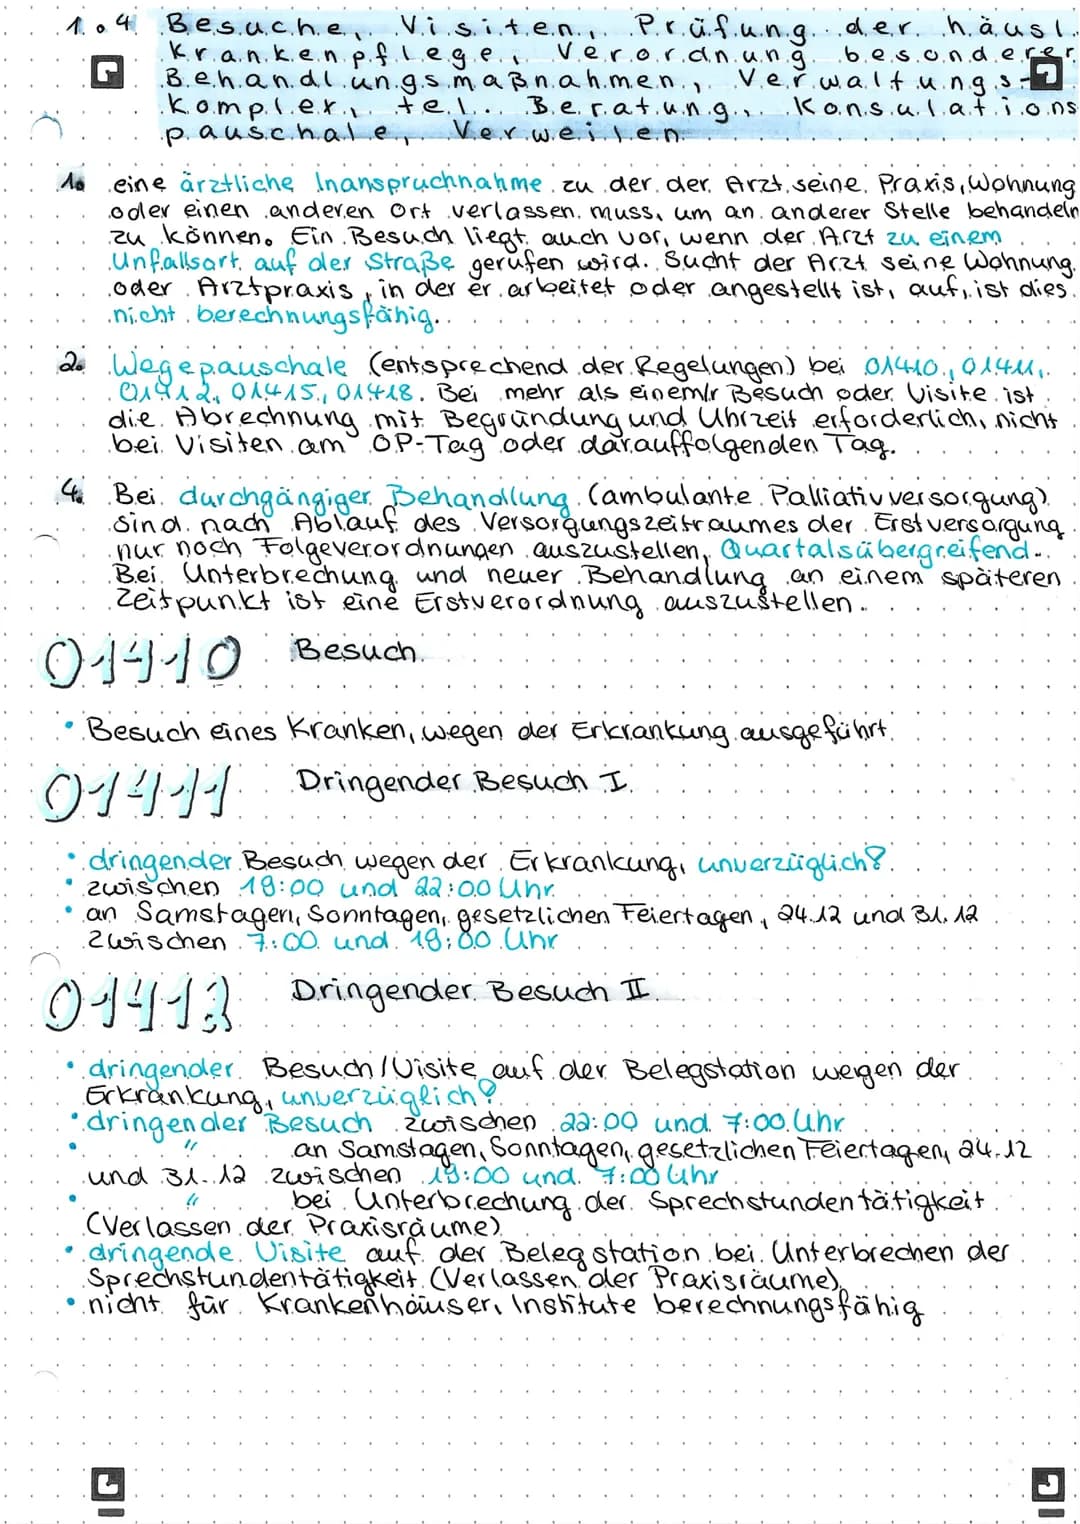 1.4 Besuche, Visiten, Prüfung der häusl.
Krankenpflege, Verordnung besonderer
Behandlungsmaßnahmen, Verwaltungs-
komplex, tel. Beratung, Konsulations
pauschale, Verweilen
1. eine ärztliche Inanspruchnahme zu der der Arzt seine Praxis, Wohnung
oder einen anderen Ort verlassen muss, um an anderer Stelle behandeln
zu können. Ein Besuch liegt auch vor, wenn der Arzt zu einem
Unfallsort auf der Straße gerufen wird. Sucht der Arzt seine Wohnung
oder Arztpraxis, in der er arbeitet oder angestellt ist, auf, ist dies
nicht berechnungsfähig.
2. Wegepauschale (entsprechend der Regelungen) bei 01410, 01411,
01412, 01415, 01418. Bei mehr als einem/r Besuch oder Visite ist
die Abrechnung mit Begründung und Uhrzeit erforderlich, nicht
bei Visiten am OP-Tag oder darauffolgenden Tag.
4. Bei durchgängiger Behandlung (ambulante Palliativversorgung)
sind nach Ablauf des Versorgungszeitraumes der Erstversorgung
nur noch Folgeverordnungen auszustellen, Quartalsübergreifend.
Bei Unterbrechung und neuer Behandlung an einem späteren
Zeitpunkt ist eine Erstverordnung auszustellen.
01410 Besuch
• Besuch eines Kranken, wegen der Erkrankung ausgeführt
01411 Dringender Besuch I
• dringender Besuch wegen der Erkrankung, unverzüglich?
• zwischen 19:00 und 22:00 Uhr
• an Samstagen, Sonntagen, gesetzlichen Feiertagen, 24.12 und 31.12
zwischen 7:00 und 19:00 Uhr
01412 Dringender Besuch II
• dringender Besuch/Visite auf der Belegstation wegen der
Erkrankung, unverzüglich?
• dringender Besuch zwischen 22:00 und 7:00 Uhr
• " an Samstagen, Sonntagen, gesetzlichen Feiertagen, 24.12
und 31.12 zwischen 19:00 und 7:00 Uhr
• " bei Unterbrechung der Sprechstundentätigkeit
(Verlassen der Praxisräume)
• dringende Visite auf der Belegstation bei Unterbrechen der
Sprechstundentätigkeit (Verlassen der Praxisräume)
• nicht für Krankenhäuser, Institute berechnungsfähig